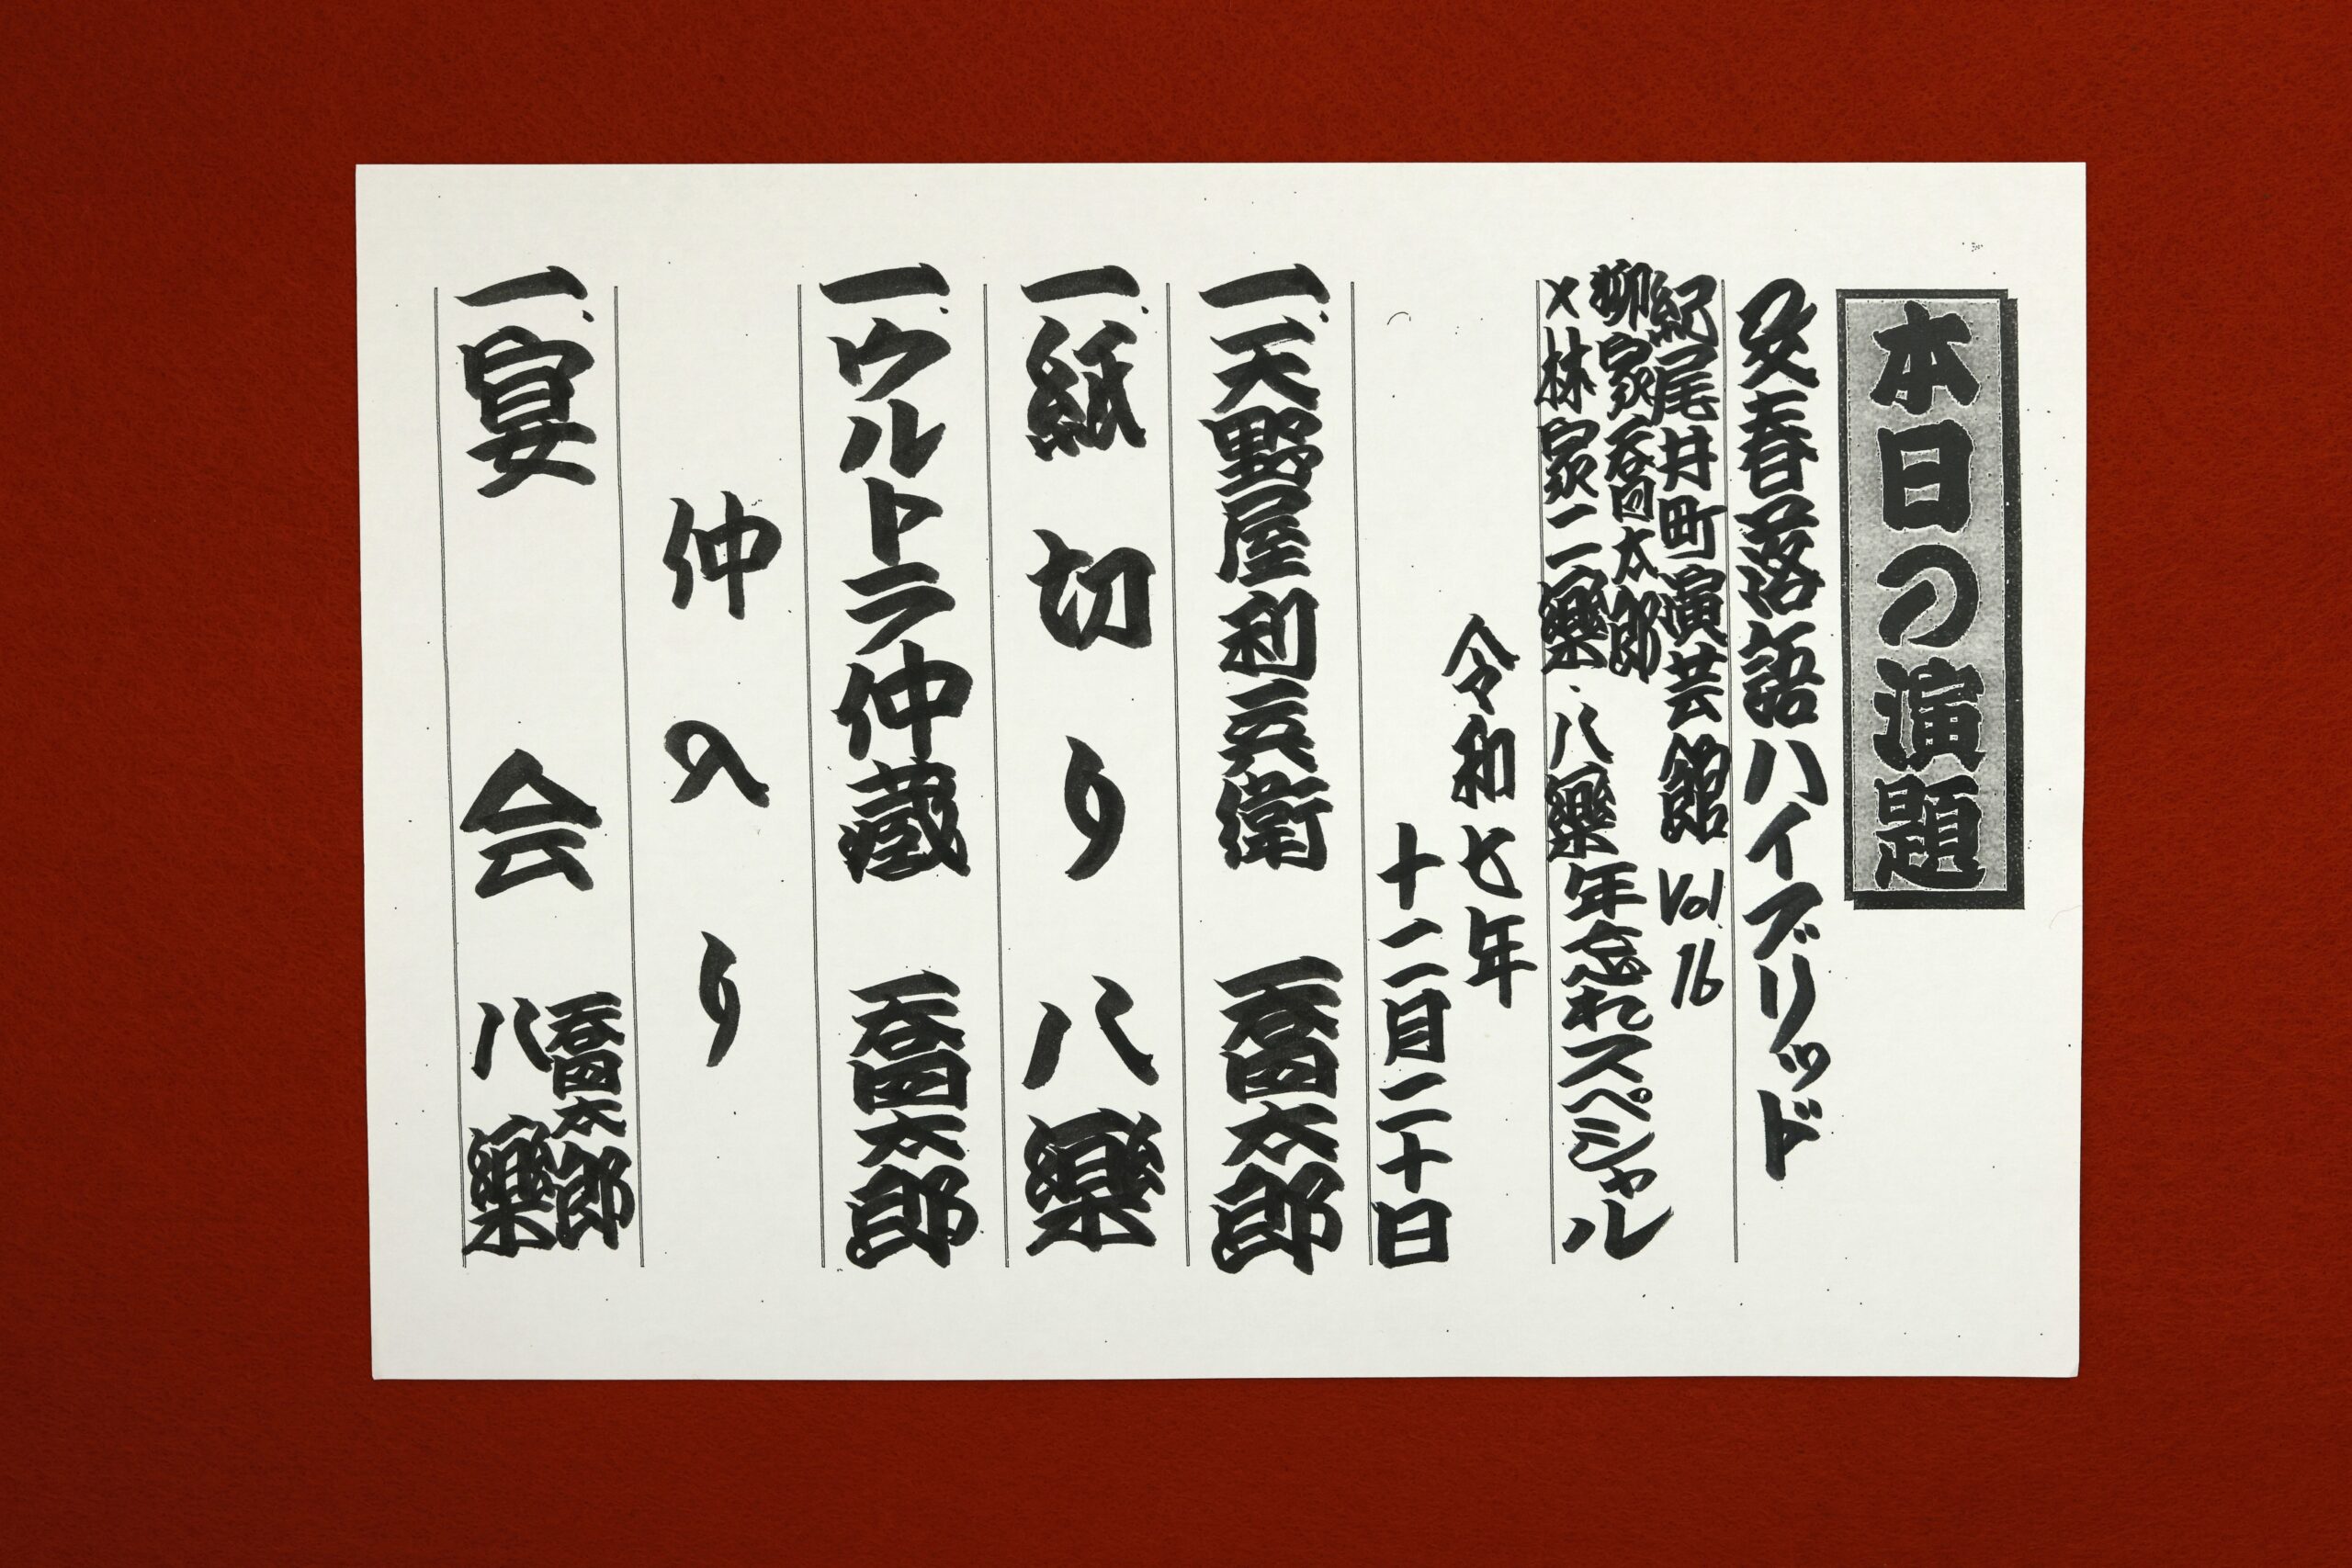 本日の演題
文春落語ハイブリッド
紀尾井町演芸館 Vol.16
柳家喬太郎
×林家二樂・八樂
年忘れスペシャル
令和七年
十二月二十日
一、天野屋利兵衛 喬太郎
一、紙切り 八樂
一、ウルトラ仲蔵 喬太郎
仲入り
一、宴会 喬太郎
八樂